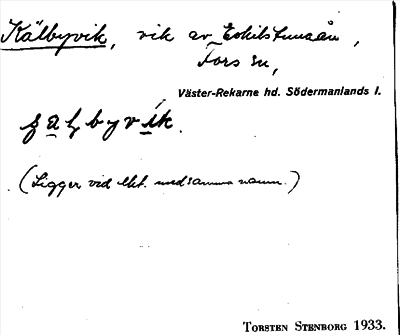 Kälbyvik, vik av Eskilstunaån,
Fors sn,
Väster-Rekarne hd. Södermanlands l.
(Ligger vid lht. med samma namn.)
TORSTEN STENBORG 1933.